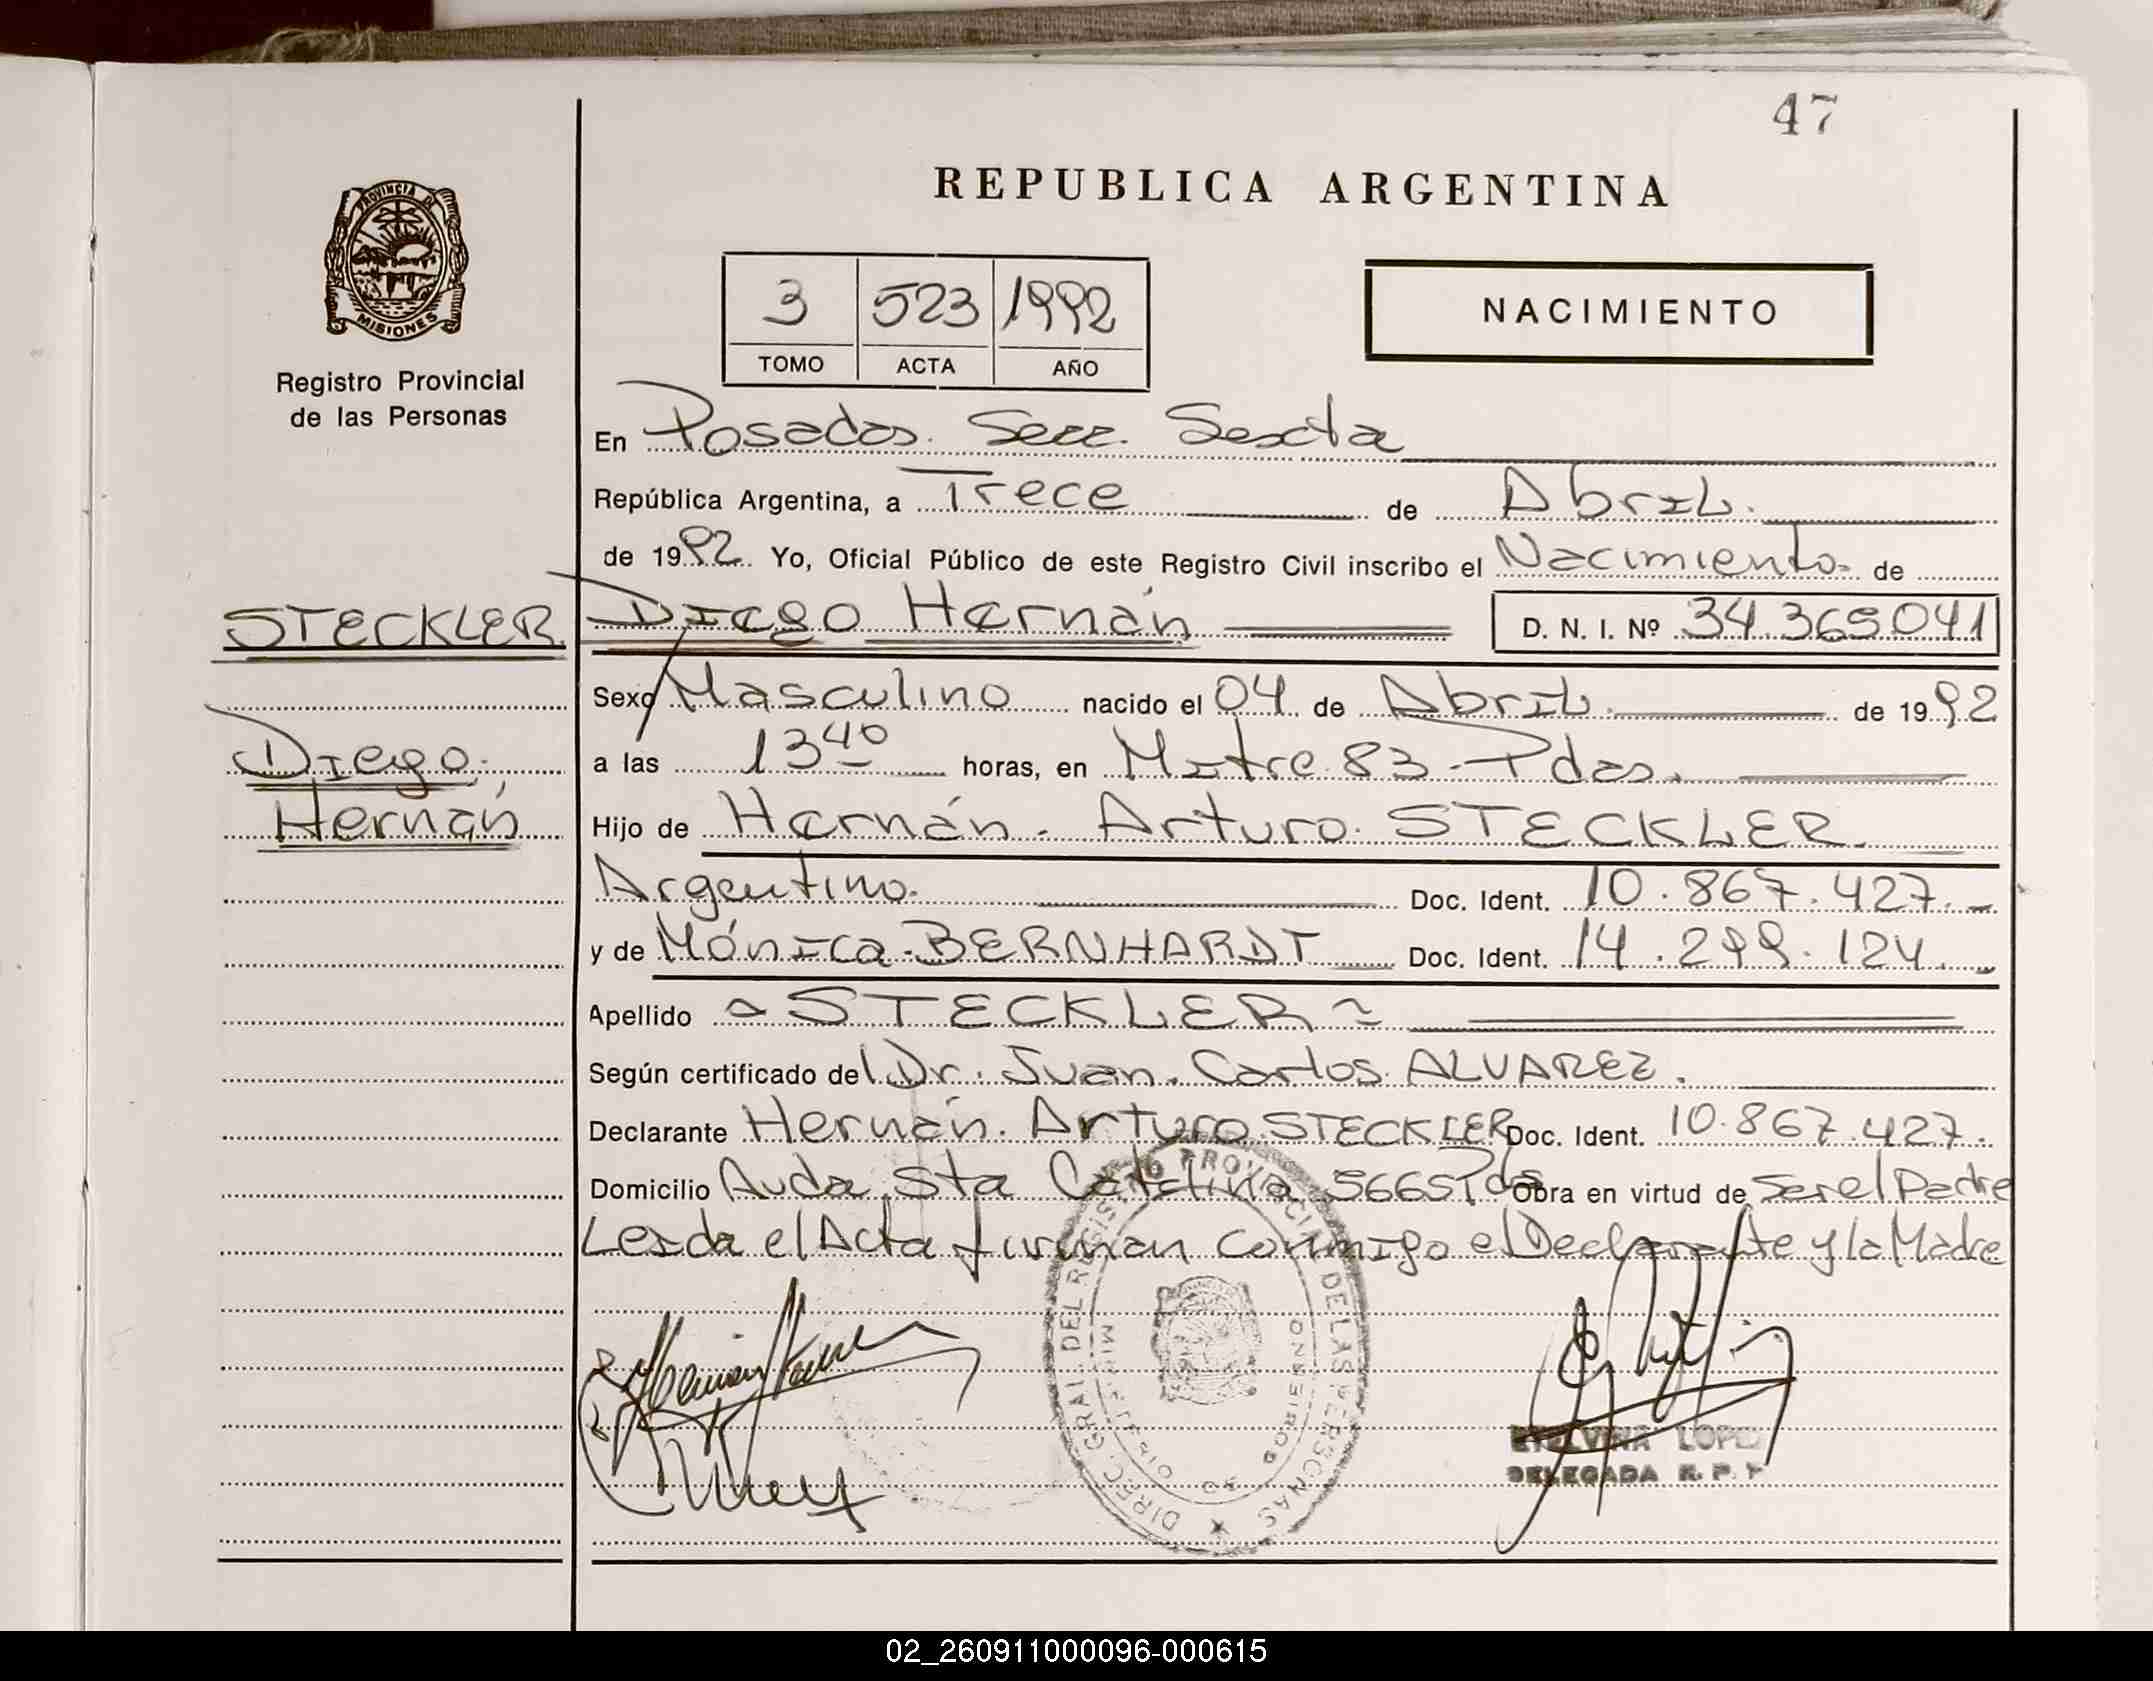 47
REPUBLICA ARGENTINA
PROVINCIA DE
MISIONES
Registro Provincial
de las Personas
3 523 1992
TOMO ACTA AÑO
NACIMIENTO
En Posadas. Secc. Sexta
República Argentina, a Trece de Abril.
de 1992. Yo, Oficial Público de este Registro Civil inscribo el Nacimiento de
STECKLER Diego Hernán D. N. I. Nº 34.365041
Sexo Masculino nacido el 04 de Abril de 1992
Diego a las 13 40 horas, en Mitre 83 - Pdas.
Hernán Hijo de Hernán Arturo STECKLER
Argentino. Doc. Ident. 10.867.427.
y de Mónica BERNHARDT Doc. Ident. 14.299.124.
Apellido STECKLER
Según certificado del Dr. Juan Carlos ALVAREZ.
Declarante Hernán Arturo STECKLER Doc. Ident. 10.867.427.
Domicilio Avda Sta Catalina 5665 Pdas Obra en virtud de Ser el Padre
Leida el Acta firman conmigo el Declarante y la Madre
DIREC. GRAL. DEL REGISTRO PROVINCIAL DE LAS PERSONAS
ETELVINA LOPEZ
DELEGADA R. P. P.
02_260911000096-000615